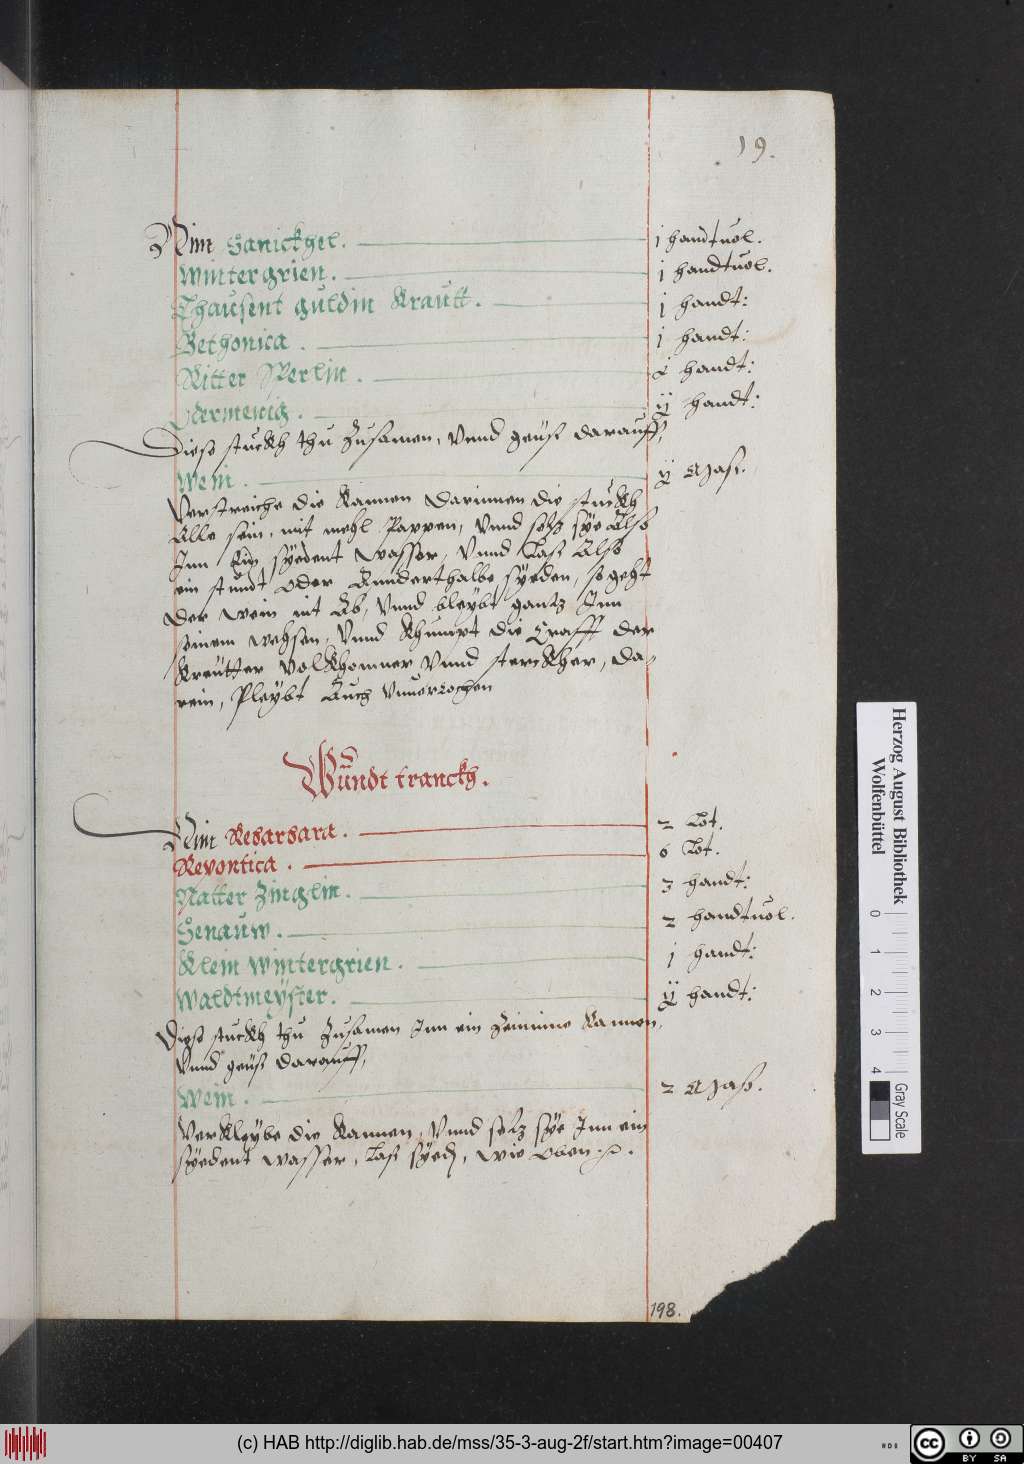 19.
Nim Sanickhel. j handtuol.
Wintergrien. j handtuol.
Thausent guldin Krautt. j handt:
Bethonica. j handt:
Ritter Sperlin. j handt:
Odermenig. ij handt:
Diese stuckh thu Zusamen, Vnnd geuß darauff,
Wein. ij Maß.
Verstreiche die Kannen darinnen die stuckh
Alle sein, mit mehl Pappen, Vnnd setz sÿe Also
Jnn Ein sÿedent Wasser, Vnnd Laß Also
ein stundt oder Annderthalbe sÿeden, so geht
der wein nit Ab, Vnnd bleybt gantz Jnn
seinem wehsen, Vnnd Khumpt die Crafft der
Kreutter Volkhomner Vnnd sterckher, da-
rein, Pleybt Auch Vnuerrochen
Wundt tranckh.
Nim Rebarbara. 2 Lot.
Revontica. 6 Lot.
Natter Zinglin. 3 handt:
Senauw. 2 handtuol.
Klein Wintergrien. j handt:
Waldtmeÿster. ij handt:
Diese stuckh thu Zusamen Jnn ein Zeinine Kannen,
Vnnd geuß darauff,
Wein. 2 Maß.
Verkleybe die Kannen, Vnnd setz sÿe Jnn ein
sÿedent wasser, Laß sÿedn, wie oben.
198.
Herzog August Bibliothek
Wolfenbüttel
0 1 2 3 4
Gray Scale
(c) HAB http://diglib.hab.de/mss/35-3-aug-2f/start.htm?image=00407
cc BY SA